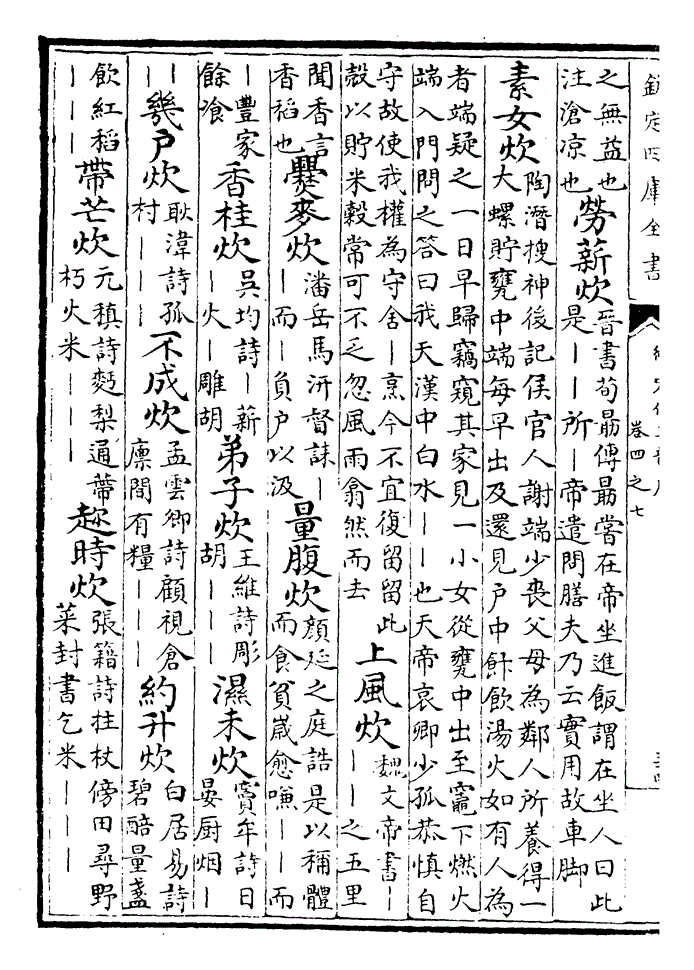 欽定四庫全書
卷四之七
之無益也
注滄凉也
勞薪炊
晉書荀朂傳朂嘗在帝坐進飯謂在坐人曰此
是——所—帝遣問膳夫乃云實用故車脚
素女炊
陶潜搜神後記侯官人謝端少喪父母為鄰人所養得一
大螺貯甕中端每早出及還見户中飰飲湯火如有人為
者端疑之一日早歸竊窺其家見一小女從甕中出至竈下燃火
端入門問之答曰我天漢中白水——也天帝哀卿少孤恭慎自
守故使我權為守舍—烹今不宜復留留此
殻以貯米穀常可不乏忽風雨翕然而去
上風炊
魏文帝書—
——之五里
聞香言
香稻也
爨麥炊
潘岳馬汧督誄—
—而—負户以汲
量腹炊
顔延之庭誥是以稱體
而食貧嵗愈嗛——而
—豐家
餘飡
香桂炊
吳均詩—薪
—火—雕胡
弟子炊
王維詩彫
胡———
濕未炊
竇牟詩日
晏厨烟—
——
幾户炊
耿湋詩孤
村———
不成炊
孟雲卿詩顧視倉
廩間有糧———
約升炊
白居易詩
碧醅量盞
飲紅稻
———
帶芒炊
元稹詩麫梨通蔕
朽火米———
趂時炊
張籍詩拄杖傍田尋野
菜封書乞米———